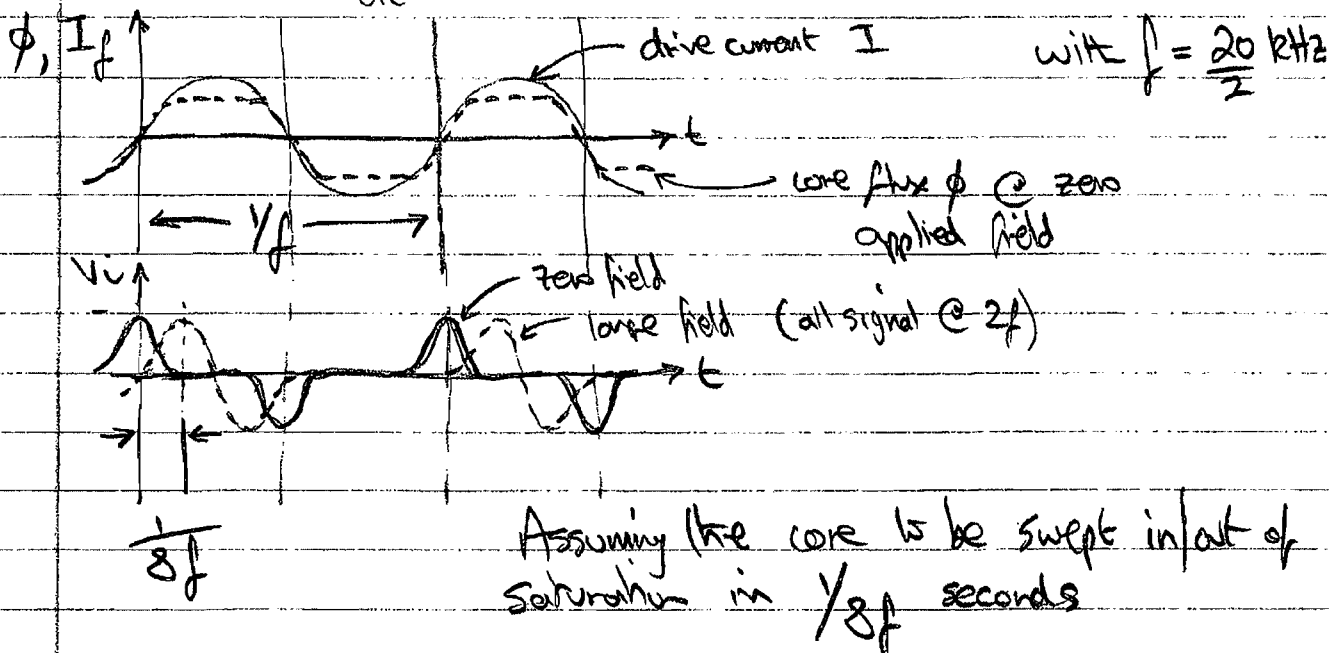 ϕ, I_f
drive current I
with f = 20/2 kHz
t
core flux ϕ @ zero
applied field
1/f
Vi
zero field
large field (all signal @ 2f)
t
1/8f
Assuming the core to be swept in/out of
saturation in 1/8f seconds